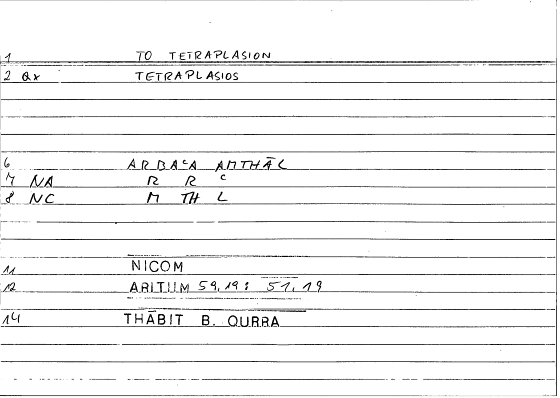 1 TO TETRAPLASION
2 Qx TETRAPLASIOS
6 ARBAʿA AMTHĀL
7 NA R B ʿ
8 NC M TH L
11 NICOM
12 ARITHM 59,19: 51,19
14 THĀBIT B. QURRA